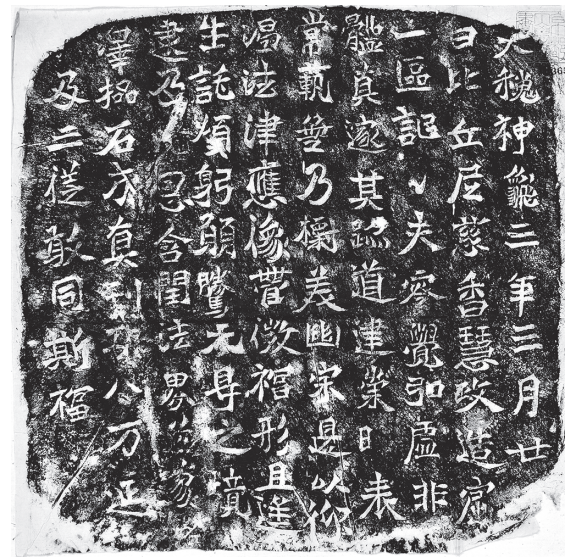 大魏神龜三年三月廿
日比丘尼慈香慧政造窟
一區記〻夫零覺弘虛非
體真邃其跡道建崇日表
常範無乃標美幽宗是以仰
渴法津應像營微福形且遙
生託煩躬願騰无㝵之境
逮及恩含閏法界
澤石成真刊八万延
及三從敢同斯福